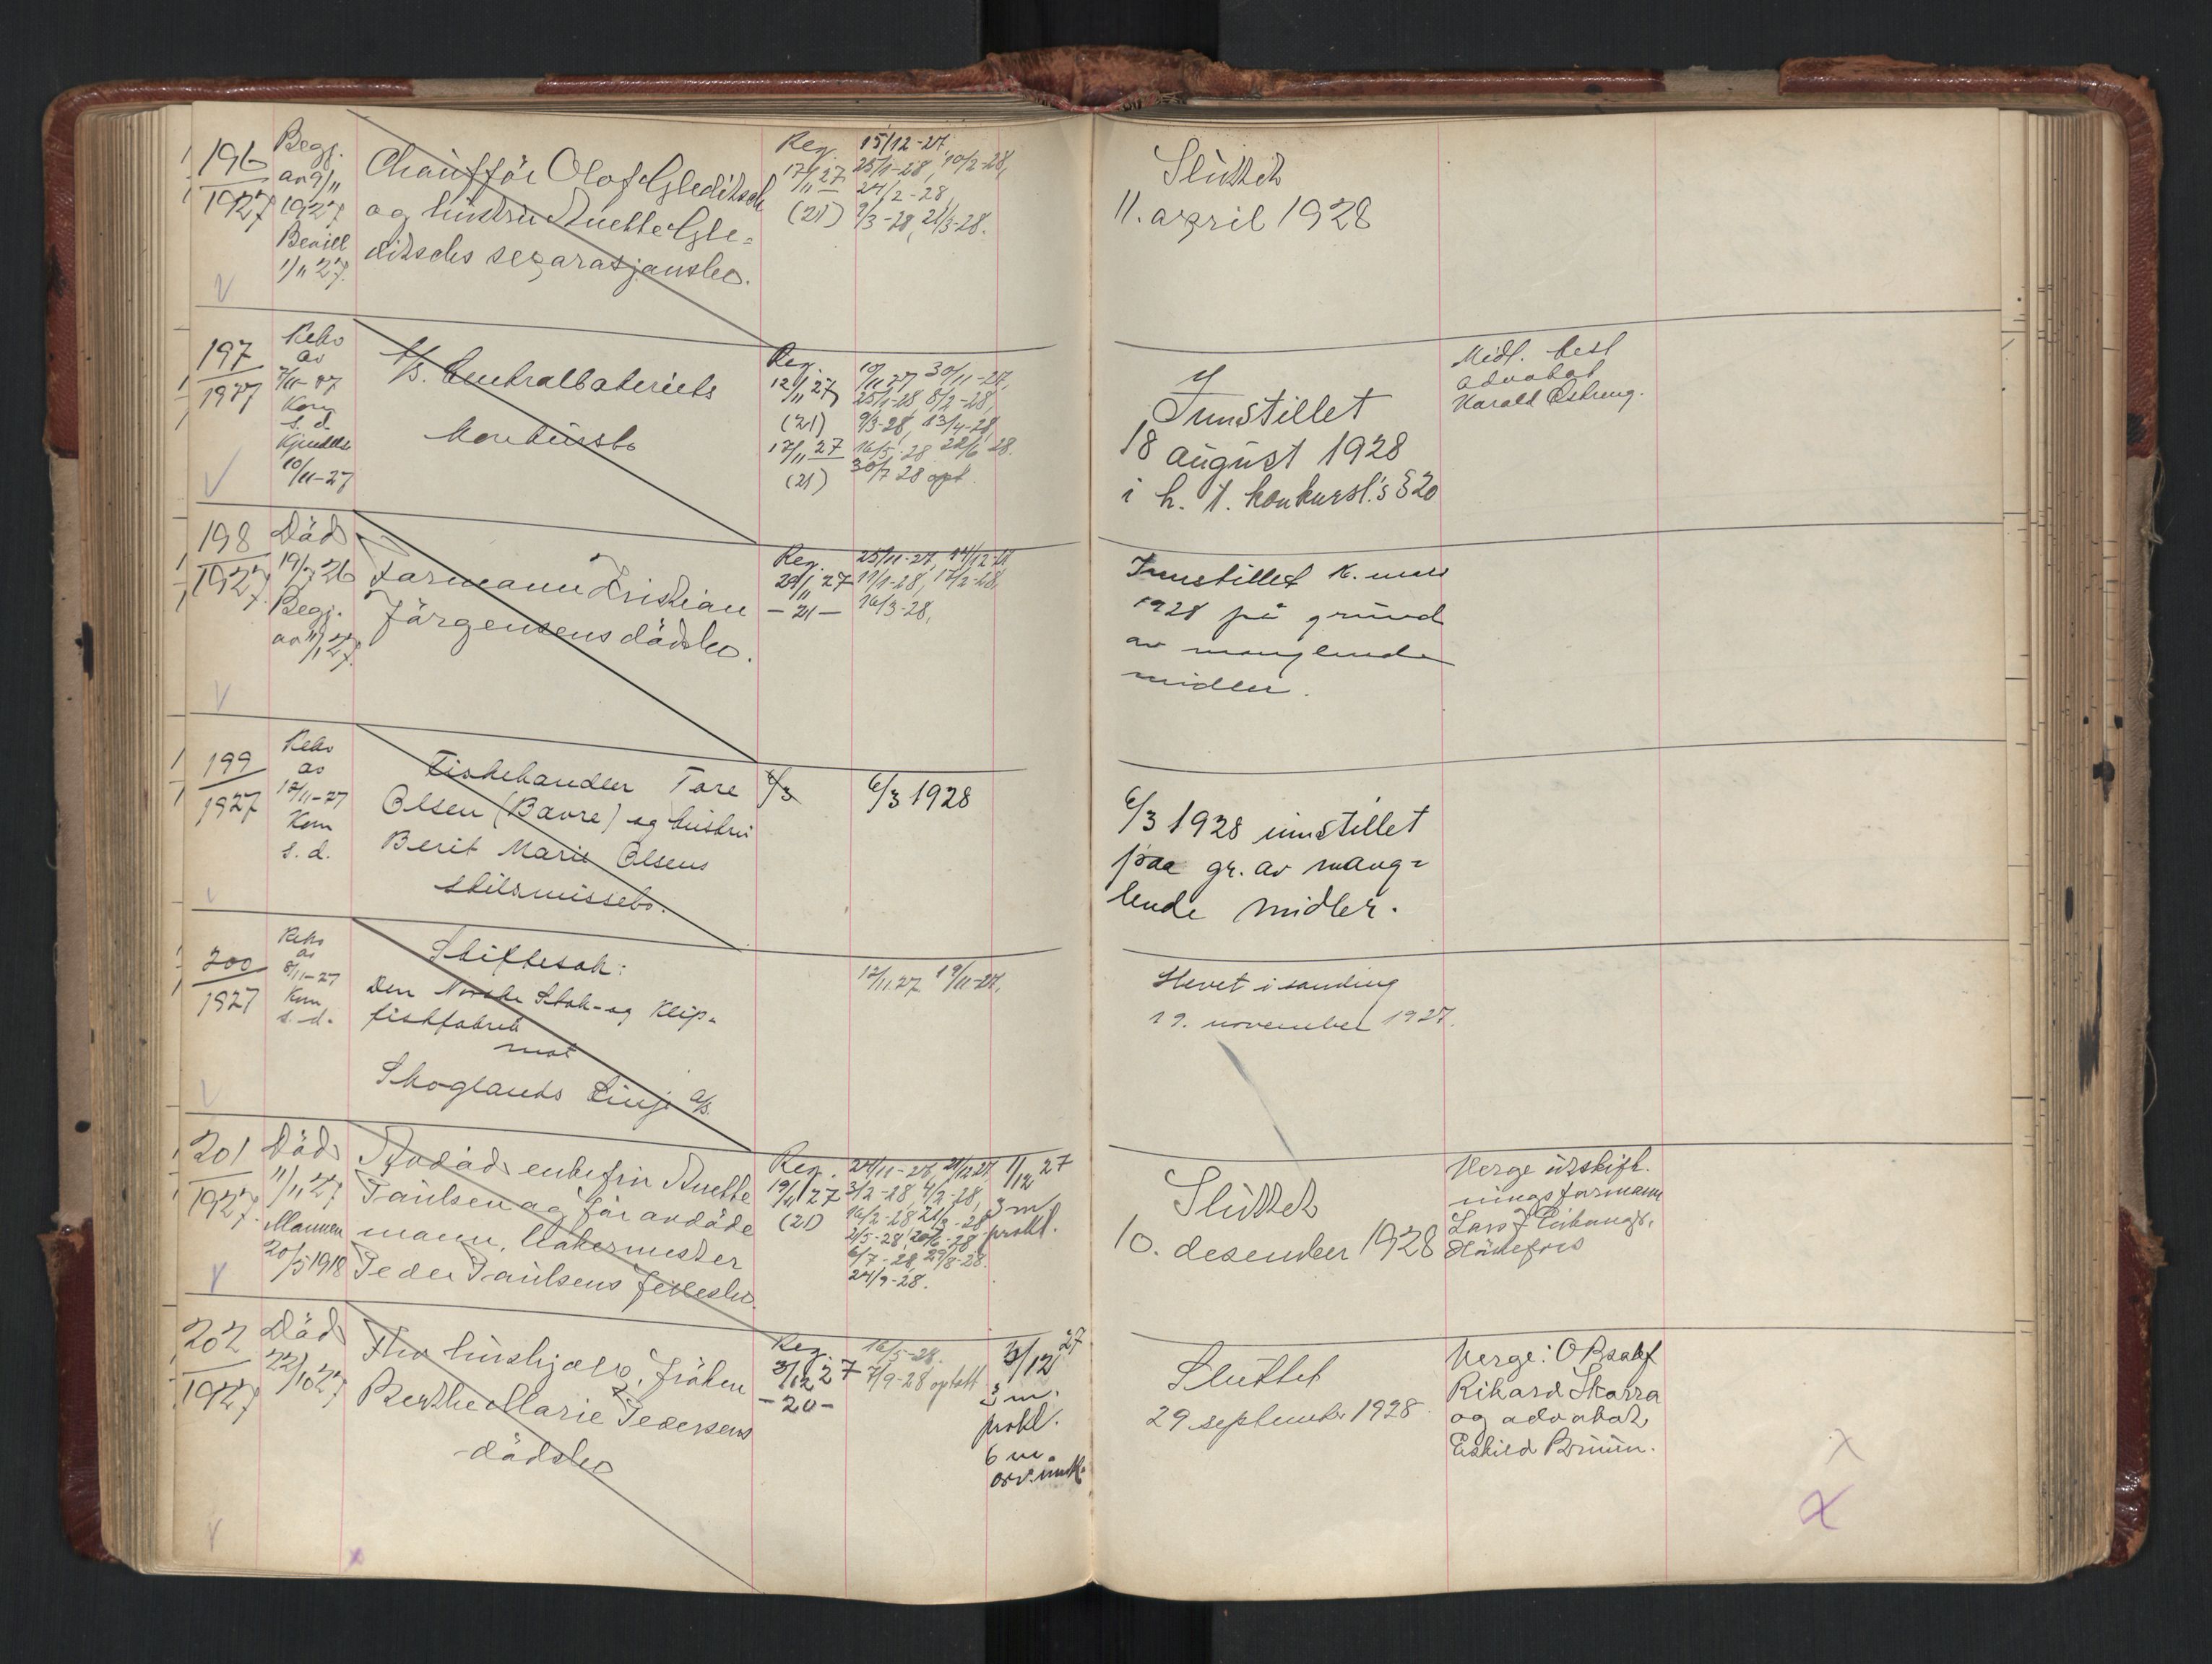 196
1927
Begj.
av 9/11
1927
Bevill
1/11 27.
Chauffør Olof Gleditsch
og hustru Anette Gle=
ditschs separasjonsbo.
Reg.
17/11 27
(21)
15/12-27,
25/1-28, 10/2-28,
24/2-28,
9/3-28, 21/3-28.
Sluttet
11. april 1928
197
1927
Rekv
av
7/11-27
Kom
s. d.
Kjendelse
10/11-27
A/S. Centralbateriets
konkursbo
Reg.
12/11 27
(21)
17/11 27
(21)
10/11 27, 30/11-27,
25/1-28, 8/2-28,
9/3-28, 13/4-28,
16/5-28, 22/6 28.
30/7 28 opt.
Innstillet
18 august 1928
i h. t. konkursl.'s § 20
Midl. best
advokat
Harald Østreng.
198
1927
Død
19/7 26
Begj.
av 11/11 27.
Formann Kristian
Jørgensens dødsbo.
Reg.
29/11 27
- 21 -
25/11-27, 14/12-27
11/1-28, 17/2-28,
16/3-28,
Innstillet 16. mars
1928 på grund
av manglende
midler.
199
1927
Rekv
av
12/11-27
Kom
s. d.
Fiskehandler Tore
Olsen (Bavre) og hustru
Berit Marie Olsens
skilsmissebo.
6/3
6/3 1928
6/3 1928 innstillet
paa gr. av mang=
lende midler.
200
1927
Rekv
av
8/11-27
Kom
s. d.
Skiftesak:
Den Norske Stok- og Klip=
fiskfabrik
mot
Skoglands Linje A/S.
12/11.27 19/11-27.
Hevet i samling
19. november 1927.
201
1927.
Død
11/11 27
Mannen
20/5 1918
Avdød enkefru Anette
Paulsen og før avdøde
mann, Makermester
Peder Paulsens fellesbo.
Reg.
19/11 27
(21)
24/11-27, 21/12 27,
3/2-28, 4/2-28,
16/2-28, 21/3-28
2/5-28, 20/6-28
6/7-28, 29/8-28.
24/9-28.
1/12 27
3 m
prokl.
Sluttet
10. desember 1928
Verge utskift=
ningsformann
202
1927
Død
22/10 27
Fhv hushjelp, frøken
Berthe Marie Pedersens
dødsbo
Reg.
3/12 27
- 20 -
16/5-28.
7/9-28 optatt
3/12 27
3 m.
prokl.
6 m.
arv.innk.
Sluttet
29 september 1928
Verge: ORsakf
Rikard Skarra
og advokat
Eskild Bruun.